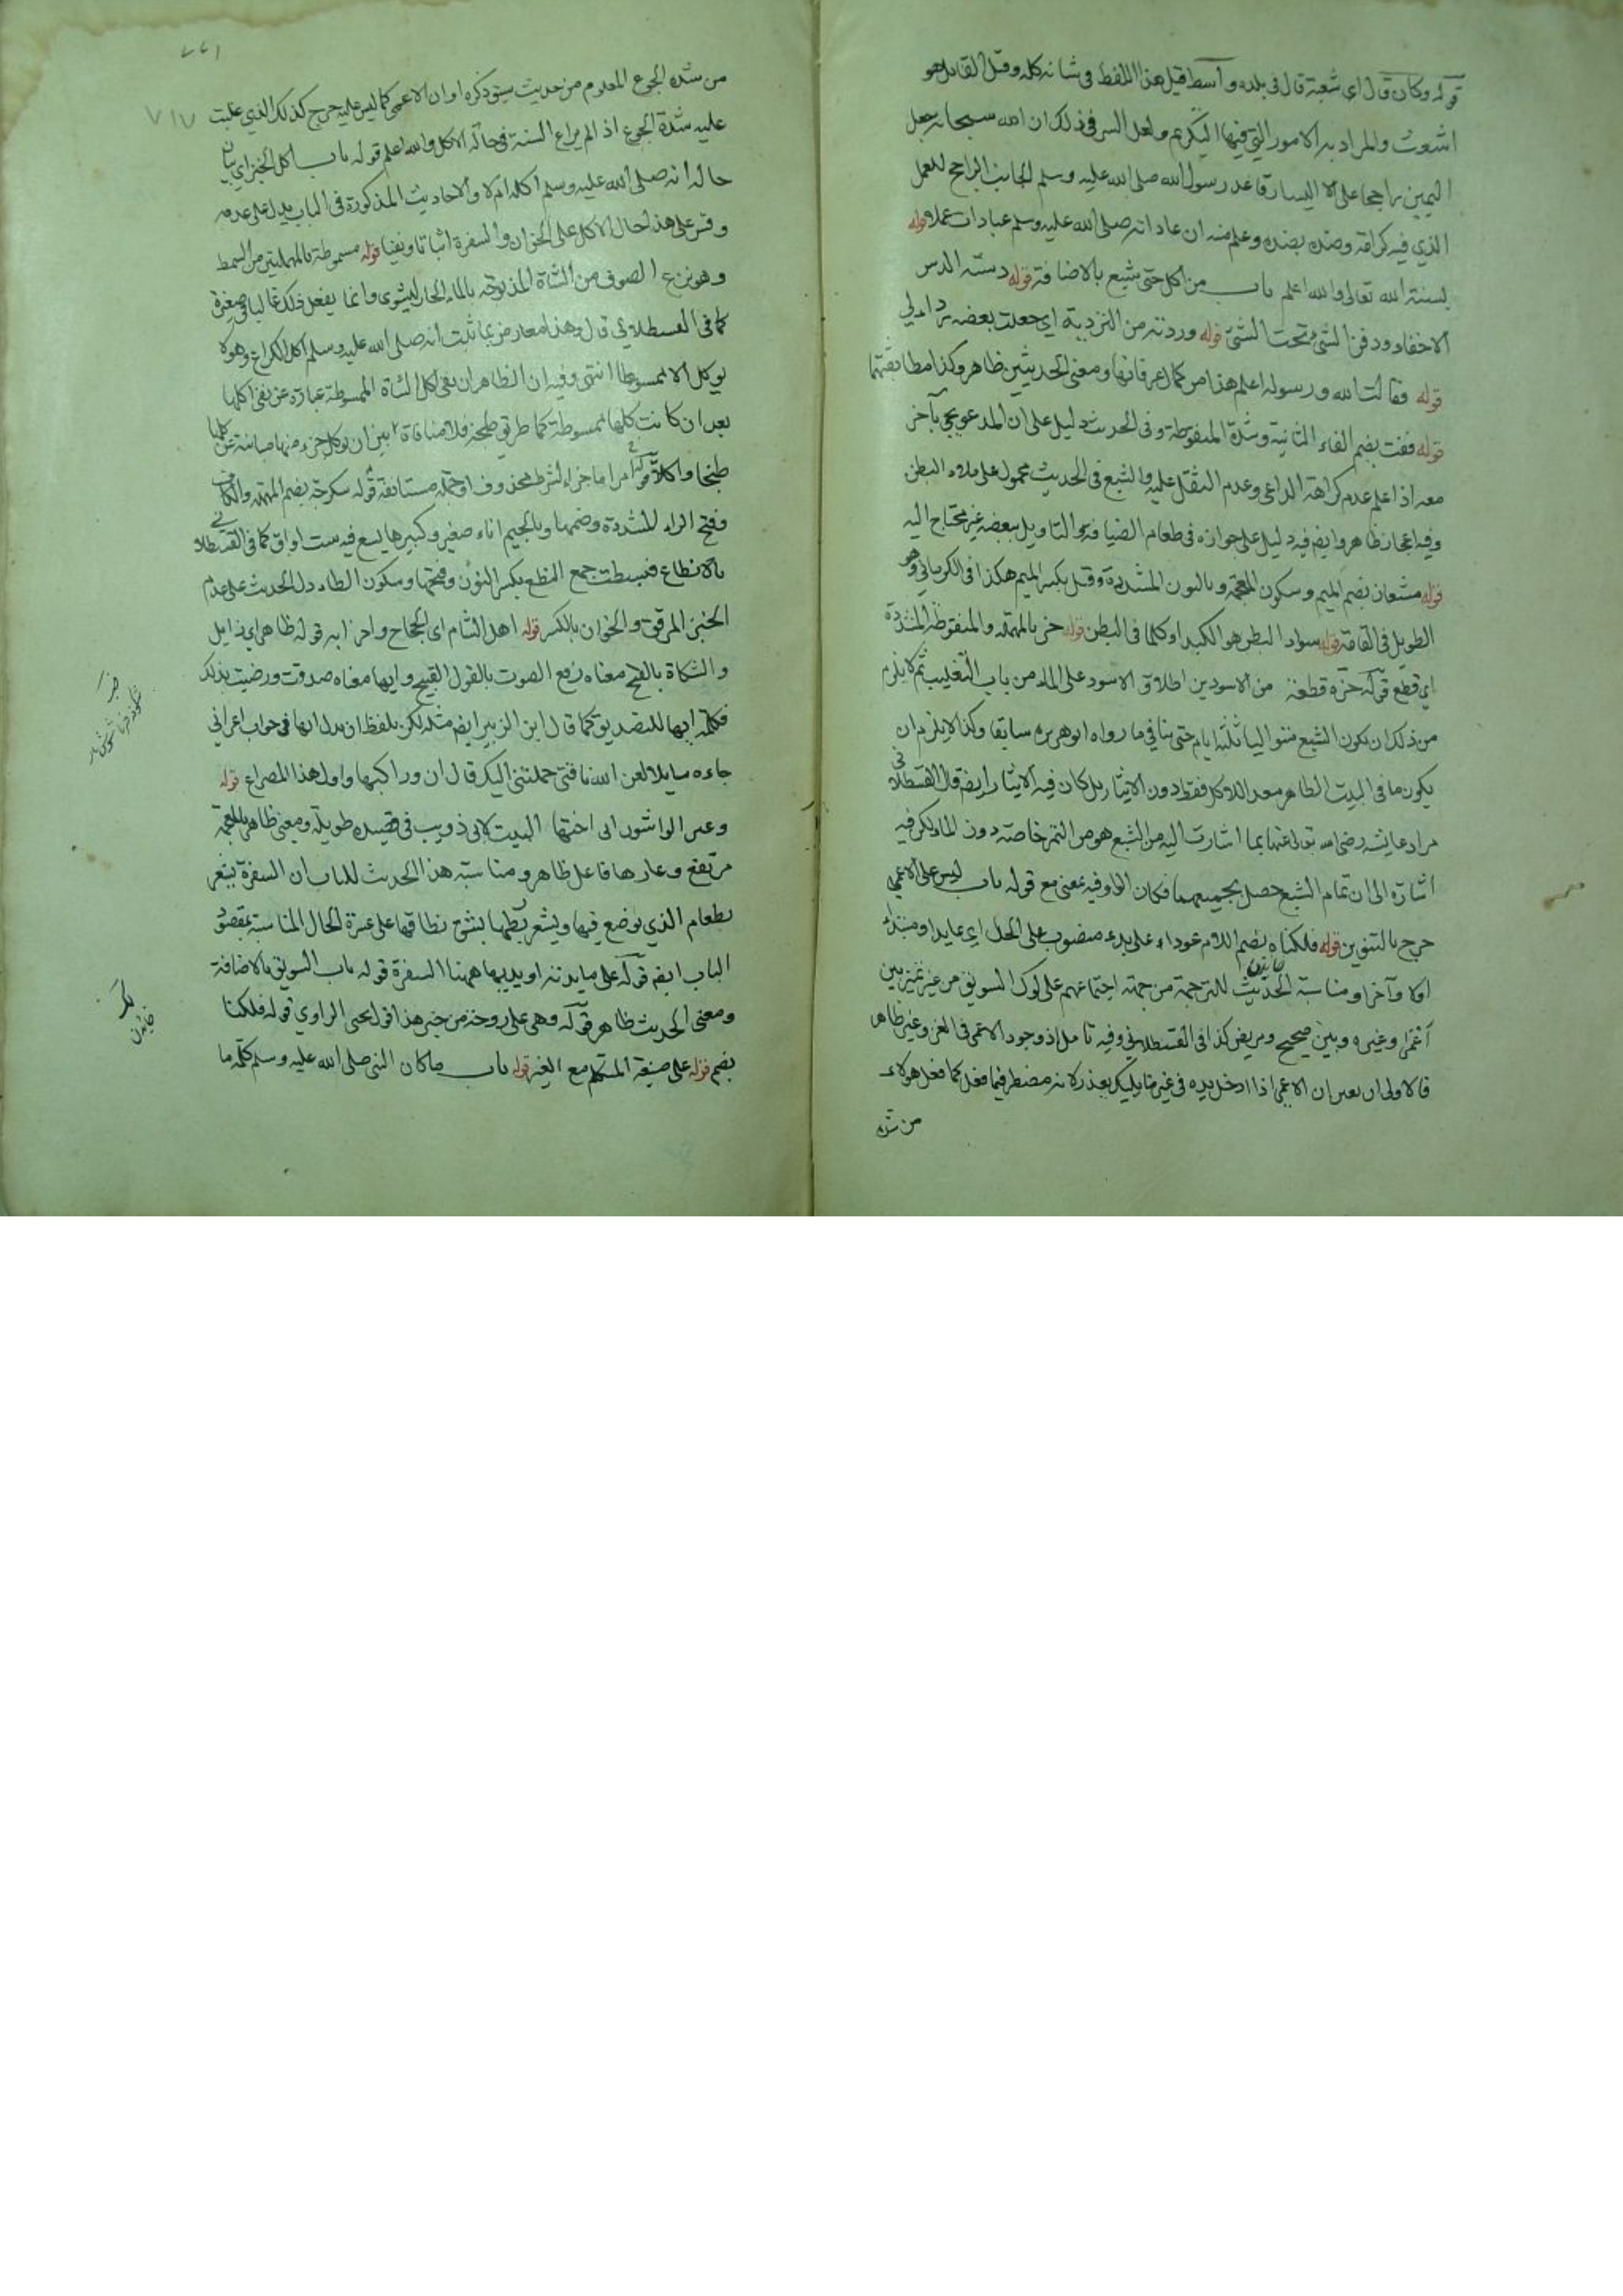 قوله وكان قال اي شعبة قال في بلده واسط قبل هذا اللفظ في شانه كله وقيل القايل هو
اشعث والمراد به الامور التي فيها التكريم ولعل السر في ذلك ان الله سبحانه جعل
اليمين راجحا على اليسار قاعد رسول الله صلى الله عليه وسلم الجانب الراجح للعمل
الذي فيه كرامة وضده بضده وعلم منه ان عاداته صلى الله عليه وسلم عبادات عملا قوله
لسنة الله تعالى والله اعلم باب من اكل حتى شبع بالاضافة قوله دسته الدس
الاخفاء ودفن الشئ تحت الشئ قوله وردتنه من التردية اي جعلت بعضه رداء لي
قوله فقالت الله ورسوله اعلم هذا من كمال عرفانها ومعنى الحديثين ظاهر وكذا مطابقتهما
قوله ففت بضم الفاء الثانية وشدة المنقوطة وفي الحديث دليل على ان المدعو يجئ بآخر
معه اذا علم عدم كراهة الداعي وعدم الثقل عليه والشبع في الحديث محمول على ملاء البطن
وفيه اعجاز ظاهر وايضا فيه دليل على جوازه في طعام الضيافة والتاويل ببعضه غير محتاج اليه
قوله مشعان بضم الميم وسكون المعجمة وبالنون المشددة وقيل بكسر الميم هكذا في الكرماني وهو
الطويل في القامة قوله سواد البطن هو الكبد او كلما في البطن قوله حز بالمهملة والمنقوطة المشددة
اي قطع قوله حزة قطعة من الاسودين اطلاق الاسود على الماء من باب التغليب ثم لا يلزم
من ذلك ان يكون الشبع متواليا ثلثة ايام حتى ينافي ما رواه ابو هريرة سابقا وكذا لا يلزم ان
يكون ما في البيت الطاهر معد للاكل فقط دون الايثار بل كان فيه الايثار ايضا قال القسطلاني
مراد عايشة رضي الله تعالى عنها بما اشارت اليه من الشبع هو من التمر خاصة دون الماء لكن فيه
اشارة الى ان تمام الشبع حصل بجميعهما فكان الواو فيه بمعنى مع قوله باب ليس على الاعمى
حرج بالتنوين قوله فلكناه بضم اللام عودا على بدء منصوب على الحال اي عايدا ومبتدأ
اولا وآخرا ومناسبة الحديث للترجمة من جهة اجتماعهم على لوك السويق من غير تميز بين
اعمى وغيره وبين صحيح ومريض كذا في القسطلاني وفيه تامل اذ وجود الاعمى في الغزو غير ظاهر
فالاولى ان يعبر ان الاعمى اذا ادخل يده في غير ما يليه يعذر لانه مضطر فيما فعل كما فعل هولاء
من شدة
من شدة الجوع المعلوم من حديث سبق ذكره او ان الاعمى كما ليس عليه حرج كذلك الذي غلبت
عليه شدة الجوع اذ لم يراع السنة في حالة الاكل والله اعلم قوله باب اكل الخبز اي بيان
حاله انه صلى الله عليه وسلم اكله ام لا والاحاديث المذكورة في الباب يدل على عدمه
وقس على هذا حال الاكل على الخوان والسفرة اثباتا ونفيا قوله مسموطة بالمهملتين من السمط
وهو نزع الصوف من الشاة المذبوحة بالماء الحار ليشوى وانما يفعل ذلك غالبا في صغيرة
كما في القسطلاني قال وهذا معارض بما ثبت انه صلى الله عليه وسلم اكل الكراع وهو لا
يوكل الا مسموطا انتهى وفيه ان الظاهر ان نفي اكل الشاة المسموطة عبارة عن نفي اكلها
بعد ان كانت كلها مسموطة كما طريق طبخه فلا منافاة بين ان يوكل جزء منها مباينة عن كلها
طبخا واكلا قوله مرا ما جزاء لشرط محذوف او جملة مستانفة قوله سكرجة بضم المهملة والكاف
وفتح الراء المشددة وضمها وبالجيم اناء صغير وكبيرها يسع فيه ست اواق كما في القسطلاني
بالانطاع فبسطت جمع النطع بكسر النون وفتحها وسكون الطاء دل الحديث على عدم
الخبز المرقق والخوان بالكسر قوله اهل الشام اي الحجاج واحزابه قوله ظاهر اي زايل
والشكاة بالفتح معناه رفع الصوت بالقول القبيح وايها معناه صدقت ورضيت بذلك
فكلمة ايها للتصديق كما قال ابن الزبير ايضا مثله لكن بلفظ ان بدل ايها في جواب اعرابي
جاءه سايلا لعن الله ناقتي حملتني اليك قال ان وراكبها واول هذا المصراع قوله
وعير الواشون اني احبها البيت لابي ذويب في قصيدة طويلة ومعنى ظاهر بالمعجمة
مرتفع وعارها فاعل ظاهر ومناسبة هذا الحديث للباب ان السفرة يشعر
بطعام الذي يوضع فيها ويشعر ربطها بشق نطاقها على عسرة الحال المناسبة بمقصود
الباب ايضا قوله على مايدته اويد بها ههنا السفرة قوله باب السويق بالاضافة
ومعنى الحديث ظاهر قوله وهي على روحة من خيبر هذا قول يحيى الراوي قوله فلكنا
بضم قوله على صيغة المتكلم مع الغير قوله باب ما كان النبي صلى الله عليه وسلم كلمة ما